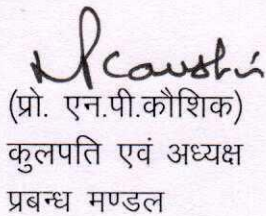 (प्रो. एन.पी.कौशिक)
कुलपति एवं अध्यक्ष
प्रबन्ध मण्डल